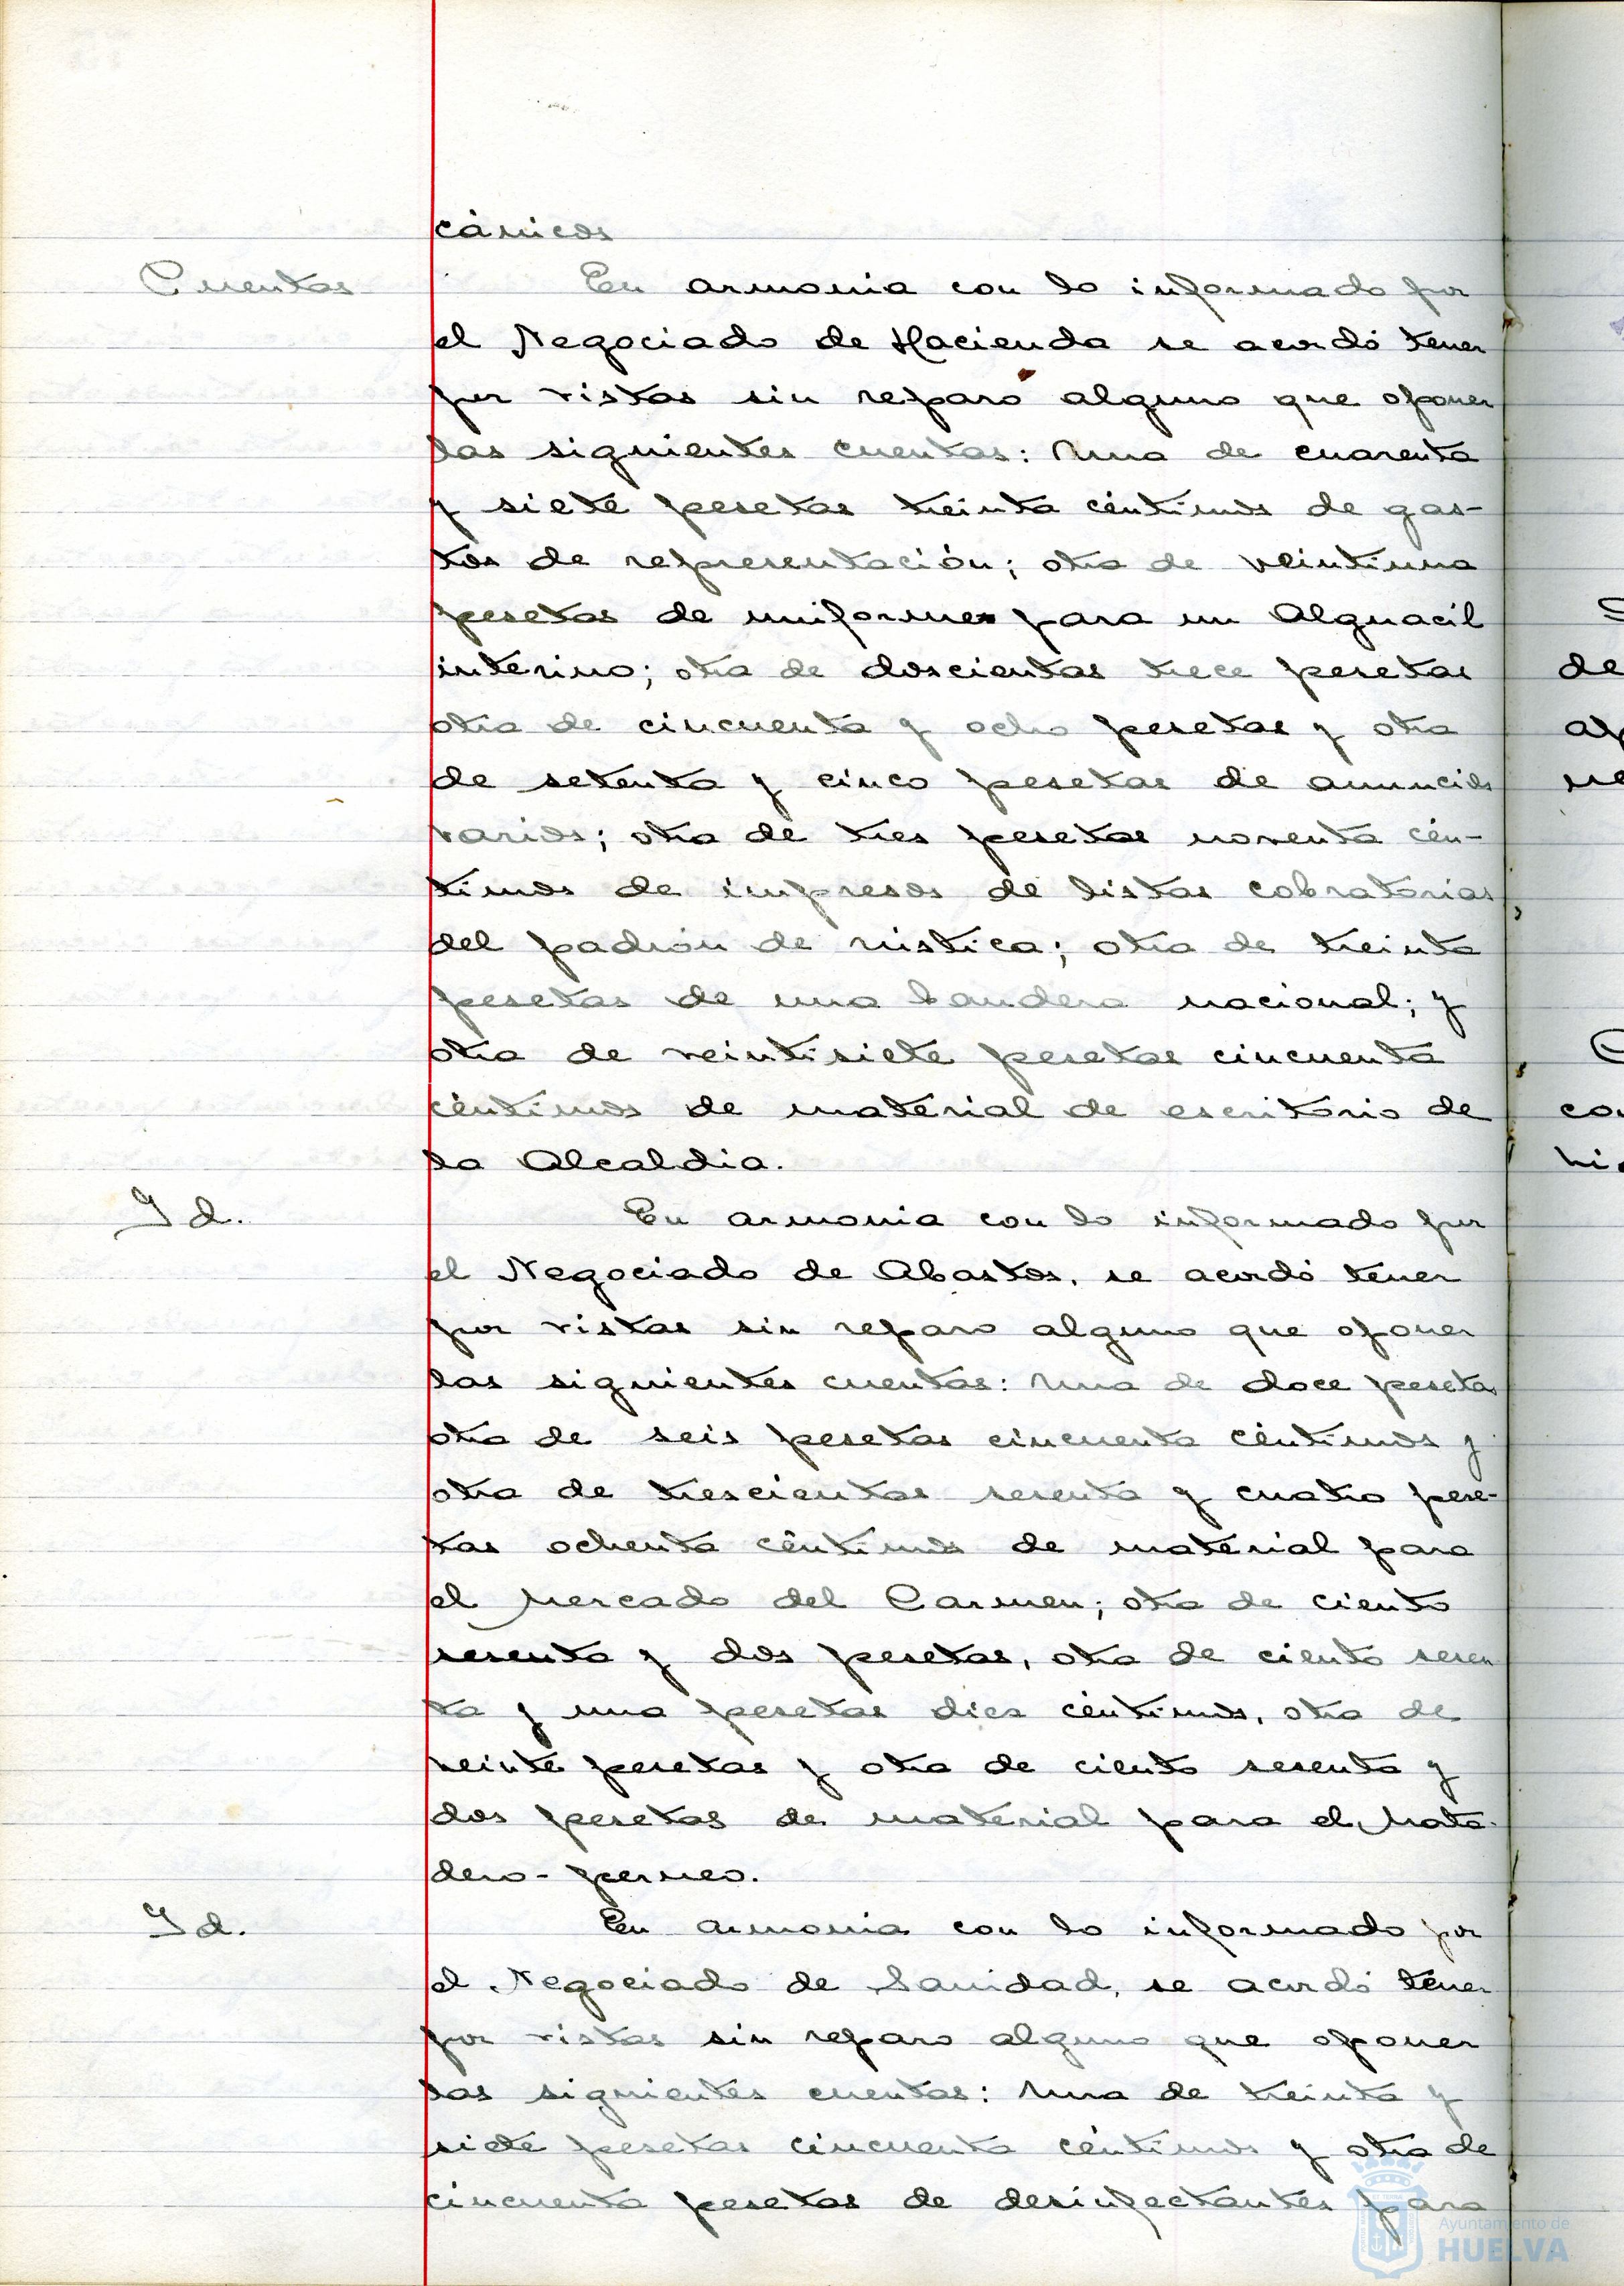 cánicos
Cuentas
En armonia con lo informado por
el Negociado de Hacienda se acordó tener
por vistas sin reparo alguno que oponer
las siguientes cuentas: Una de cuarenta
y siete pesetas treinta céntimos de gas-
tos de representación; otra de veintiuna
pesetas de uniformes para un Alguacil
interino; otra de doscientas trece pesetas
otra de cincuenta y ocho pesetas y otra
de setenta y cinco pesetas de anuncios
varios; otra de tres pesetas noventa cén-
timos de impresos de listas cobratorias
del padrón de rústica; otra de treinta
pesetas de una bandera nacional; y
otra de veintisiete pesetas cincuenta
céntimos de material de escritorio de
la Alcaldia.
Id.
En armonia con lo informado por
el Negociado de Abastos, se acordó tener
por vistas sin reparo alguno que oponer
las siguientes cuentas: Una de doce pesetas
otra de seis pesetas cincuenta céntimos y
otra de trescientas sesenta y cuatro pese-
tas ochenta céntimos de material para
el Mercado del Carmen; otra de ciento
sesenta y dos pesetas, otra de ciento sesen
ta y una pesetas diez céntimos, otra de
veinte pesetas y otra de ciento sesenta y
dos pesetas de material para el Mata-
dero-perneo.
Id.
En armonia con lo informado por
el Negociado de Sanidad, se acordó tener
por vistas sin reparo alguno que oponer
las siguientes cuentas: Una de treinta y
siete pesetas cincuenta céntimos y otra de
cincuenta pesetas de desinfectantes para
de
co
Ayuntamiento de
HUELVA